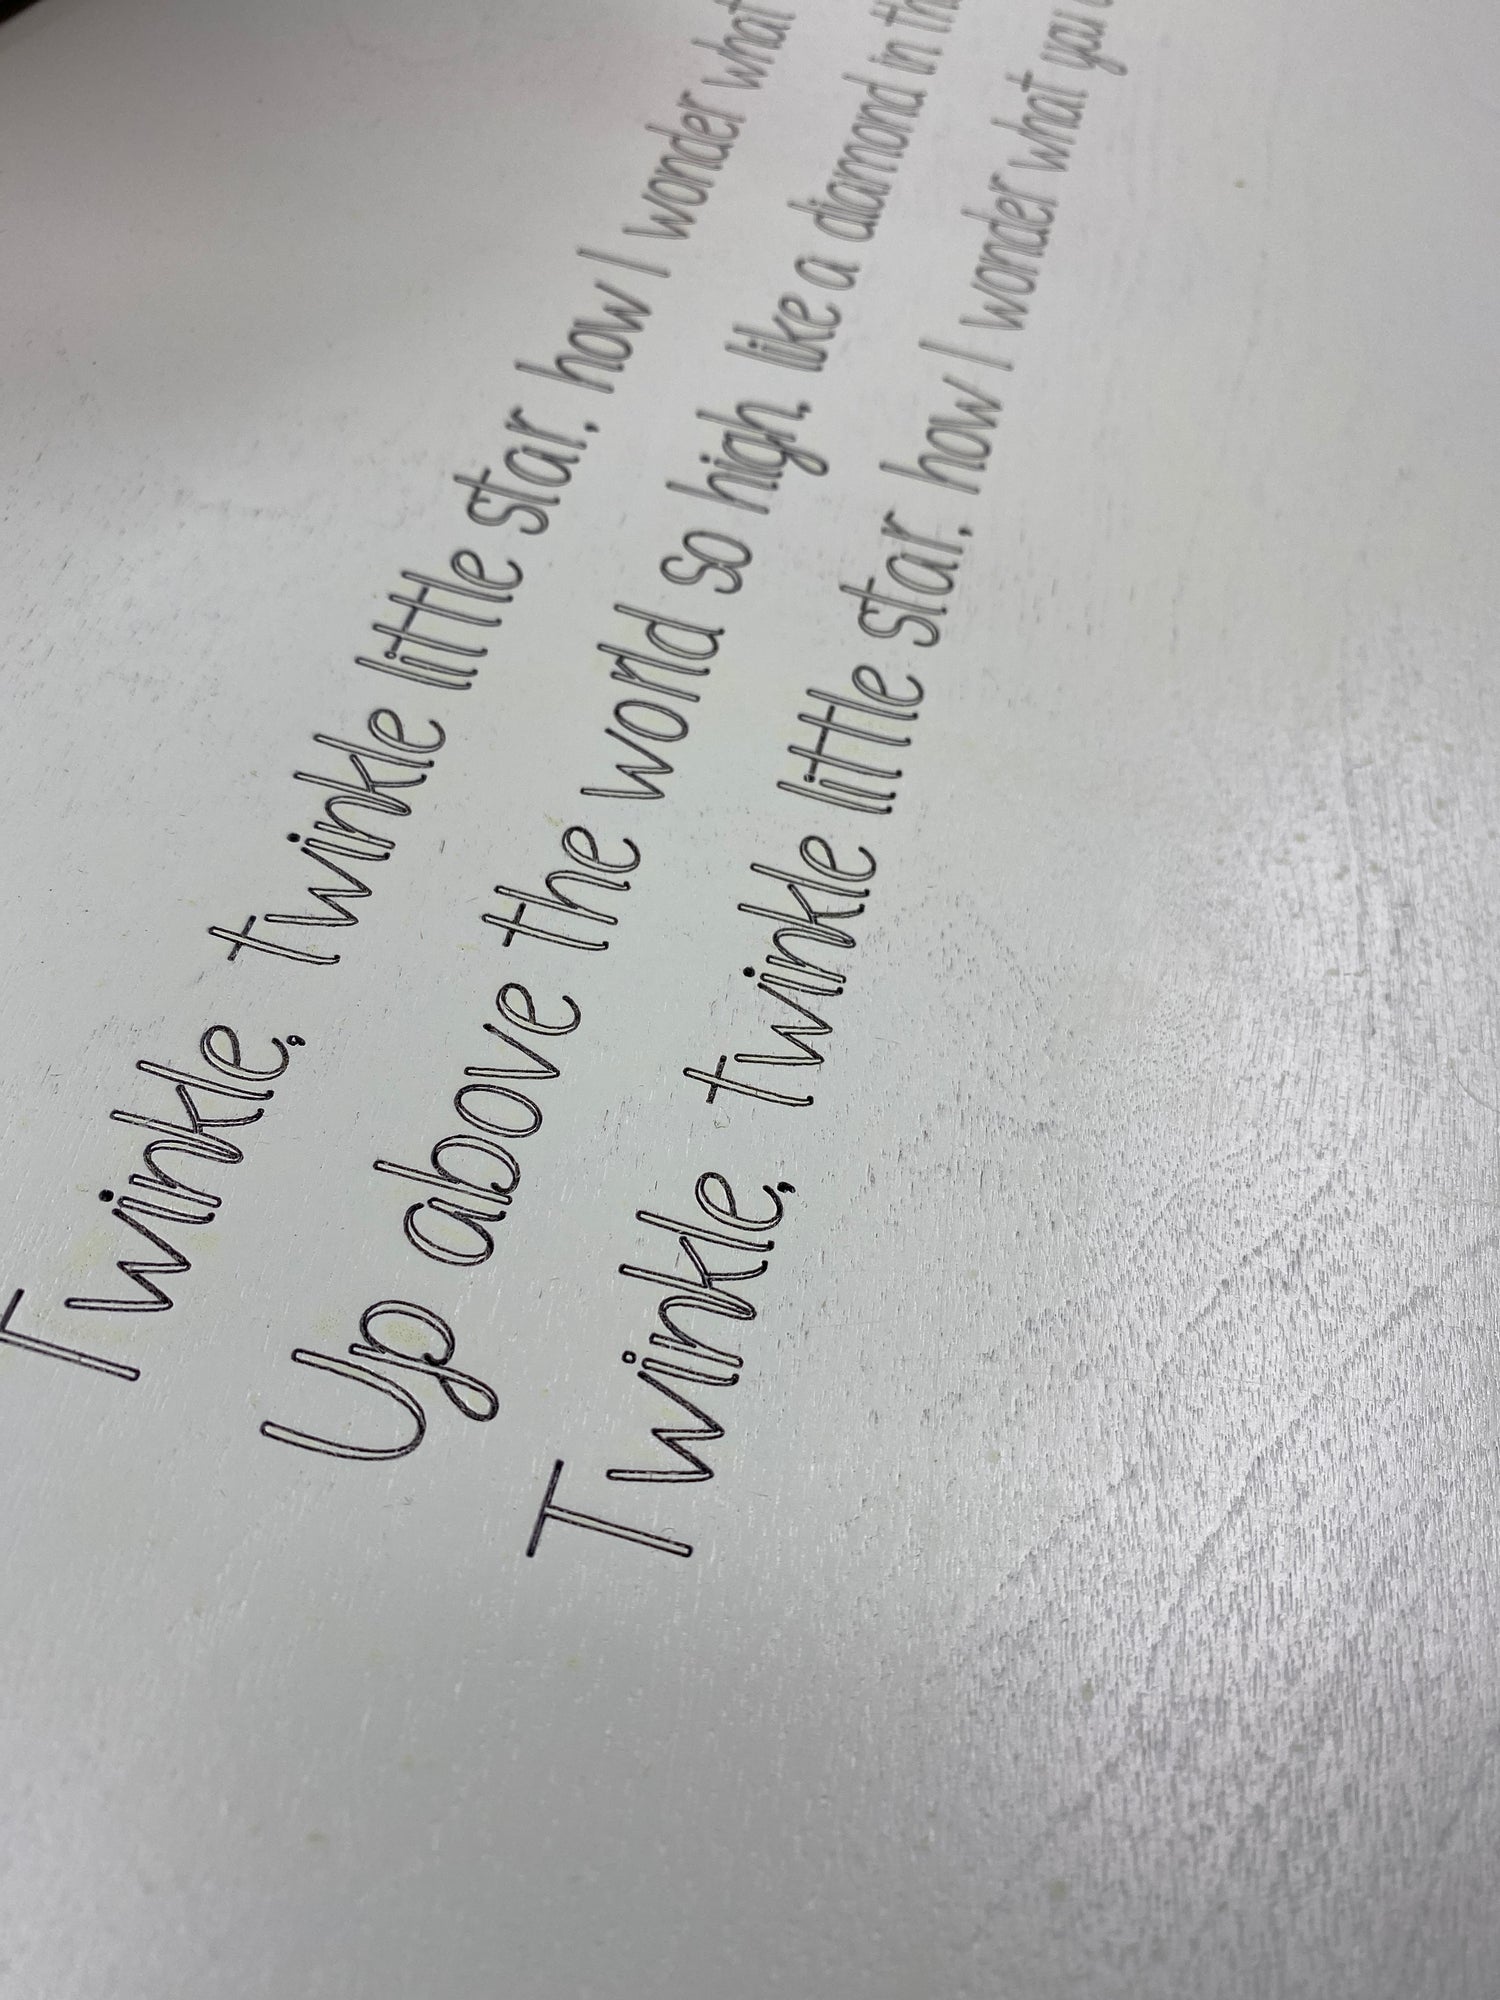 Twinkle, twinkle little star, how I wonder what
Up above the world so high, like a diamond in
Twinkle, twinkle little star, how I wonder what you